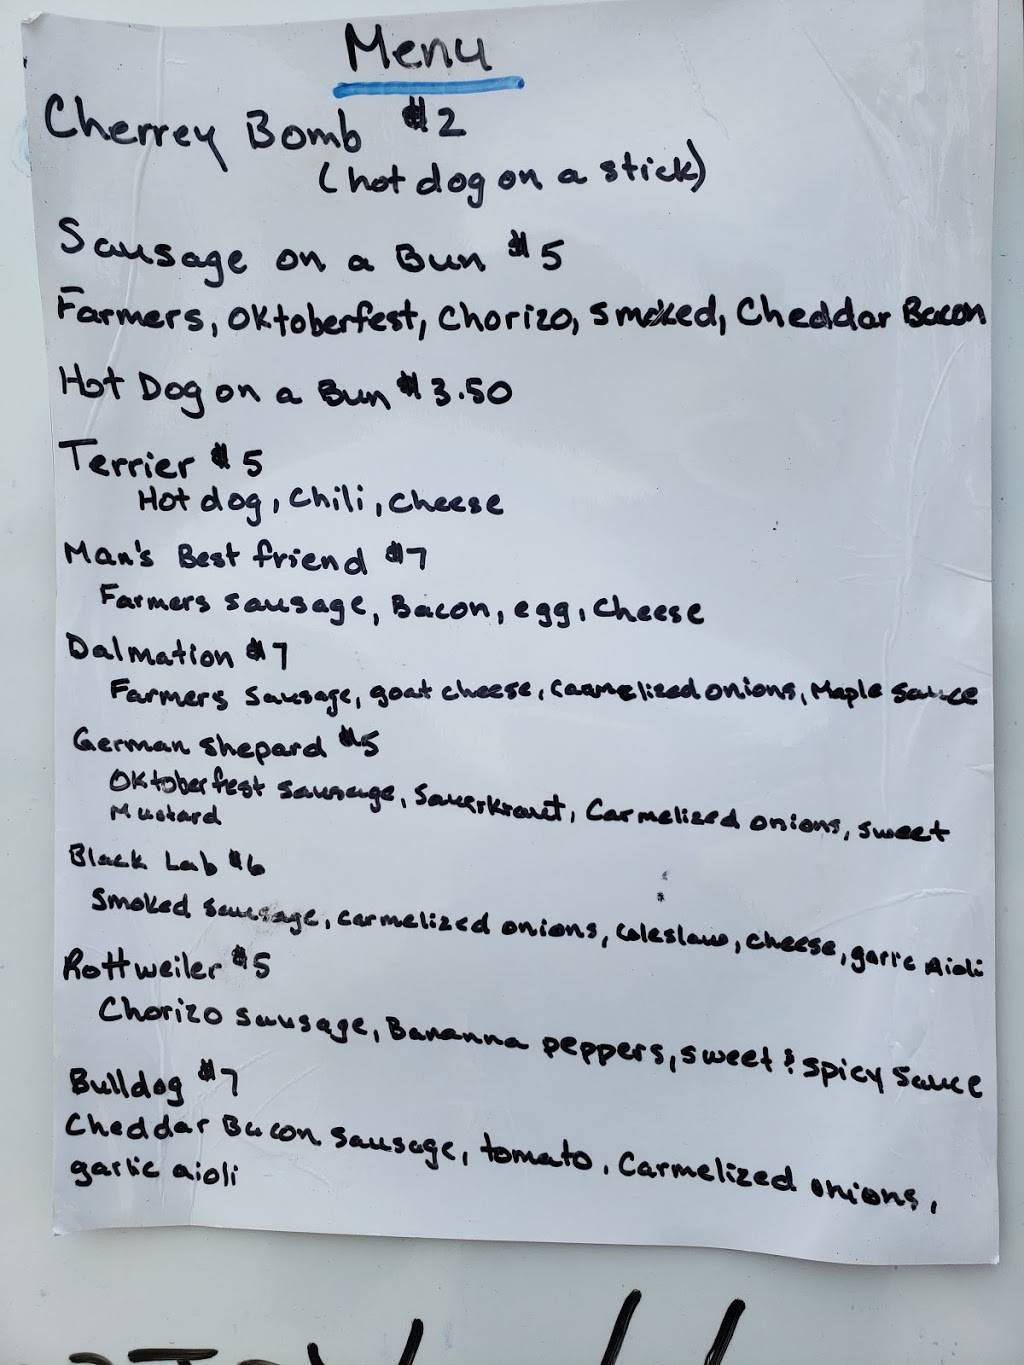 Menu
Cherrey Bomb $2
(hot dog on a stick)
Sausage on a Bun $5
Farmers, Oktoberfest, Chorizo, Smoked, Cheddar Bacon
Hot Dog on a Bun $3.50
Terrier $5
Hot dog, Chili, Cheese
Man's Best friend $7
Farmers sausage, Bacon, egg, Cheese
Dalmation $7
Farmers Sausage, goat cheese, Caarmelized onions, Maple Sauce
German Shepard $5
Oktoberfest Sausage, Sauerkraut, Carmelized onions, sweet
Mustard
Black Lab $6
Smoked Sausage, carmelized onions, coleslaw, cheese, garlic Aioli
Rottweiler $5
Chorizo sausage, Bananna peppers, sweet & spicy Sauce
Bulldog $7
Cheddar Bacon Sausage, tomato, Carmelized onions,
garlic aioli